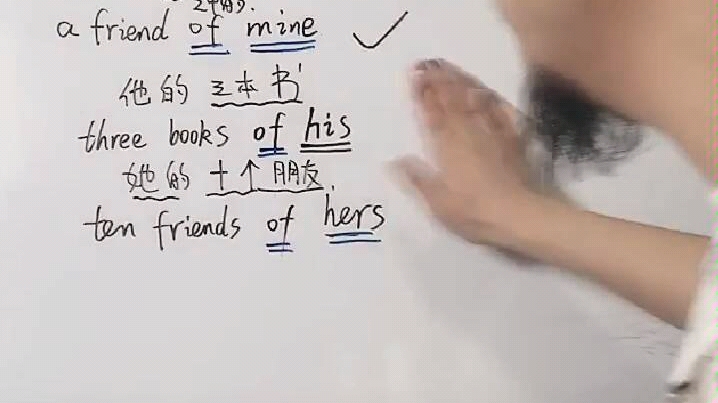 a friend of mine ✓
他的三本书
three books of his
她的十个朋友
ten friends of hers